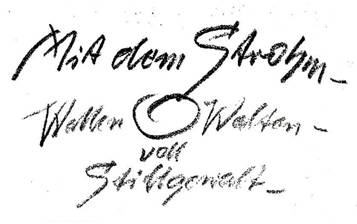 Mit dem Strohm_
Wellen Walten_
voll
Stillgewalt_